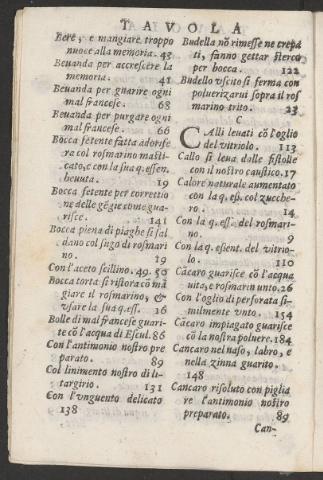 TAVOLA
Bere, e mangiare troppo
nuoce alla memoria. 43
Beuanda per accrescere la
memoria. 41
Beuanda per guarire ogni
mal francese. 68
Beuanda per purgare ogni
mal francese. 66
Bocca fetente fatta odorife
ra col rosmarino masti-
cato, e con la sua q. essen.
beuuta. 19
Bocca fetente per correttio
ne delle gēgie come gua-
risce. 141
Bocca piena di piaghe si sal
dano col sugo di rosmari
no. 19
Con l'aceto scillino. 49. 50
Bocca torta si ristora cō mā
giare il rosmarino, &
vsare la sua q. ess. 16
Bolle di mal francese guari-
te cō l'acqua di Escul. 86
Con l'antimonio nostro pre
parato. 89
Col linimento nostro di li-
targirio. 131
Con l'vnguento delicato
138
Budella nō rimesse ne crepa
ti, fanno gettar sterco
per bocca. 122
Budello vscito si ferma con
poluerizarui sopra il ros
marino trito. 23
C
CAlli leuati cō l'oglio
del vitriolo. 113
Callo si leua dalle fistolle
con il nostro caustico. 17
Calore naturale aumentato
con la q. ess. col zucche-
ro. 14
Con la q. ess. del rosmari-
no. 9
Con la q. essent. del vitrio-
lo. 110
Cācaro guarisce cō l'acqua
uita, e rosmarin unto. 26
Con l'oglio di perforata si-
milmente vnto. 154
Cācaro impiagato guarisce
cō la nostra poluere. 184
Cancaro nel naso, labro, e
nella zinna guarito.
148
Cancaro risoluto con piglia
re l'antimonio nostro
preparato. 89
Can-